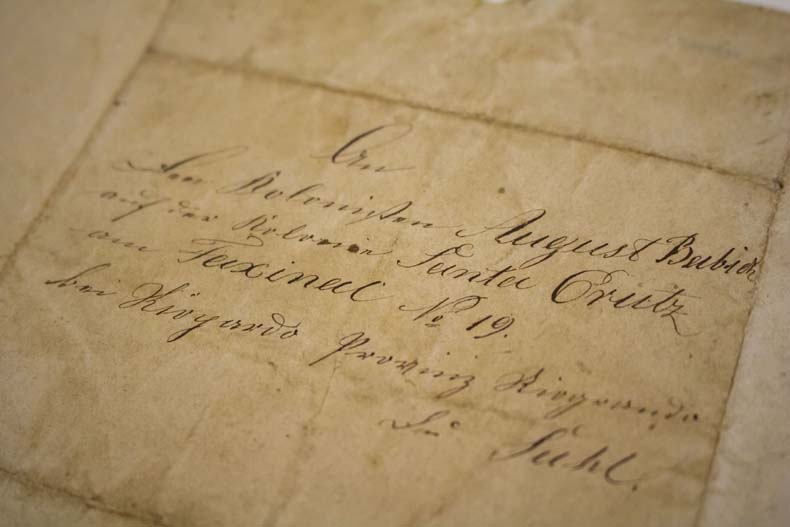 An
den Kolonisten August Babick
auf der Kolonie Santa Crutz
am Faxinal No 19.
bei Riopardo Provinz Riogrando
Du Suhl.